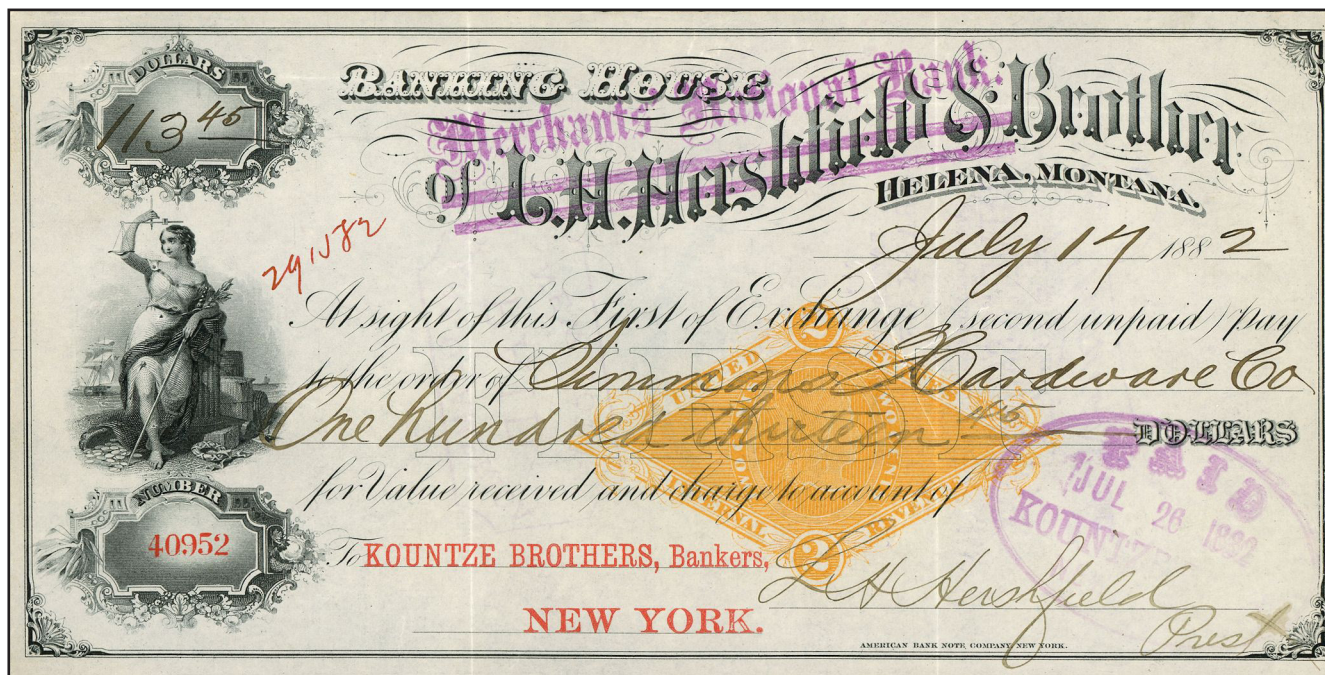 DOLLARS
113 45
BANKING HOUSE
Merchants National Bank.
of L.H. Hershfield & Brother
HELENA, MONTANA.
July 17 1882
291582
At sight of this First of Exchange (second unpaid) pay
FIRST
to the order of Simmons Hardware Co
One hundred thirteen 45 DOLLARS
for Value received and charge to account of
UNITED STATES
INTERNAL REVENUE
2
2
PAID
JUL 26 1882
KOUNTZE
NUMBER
40952
To KOUNTZE BROTHERS, Bankers,
NEW YORK.
L H Hershfield
Prest
AMERICAN BANK NOTE COMPANY NEW YORK.